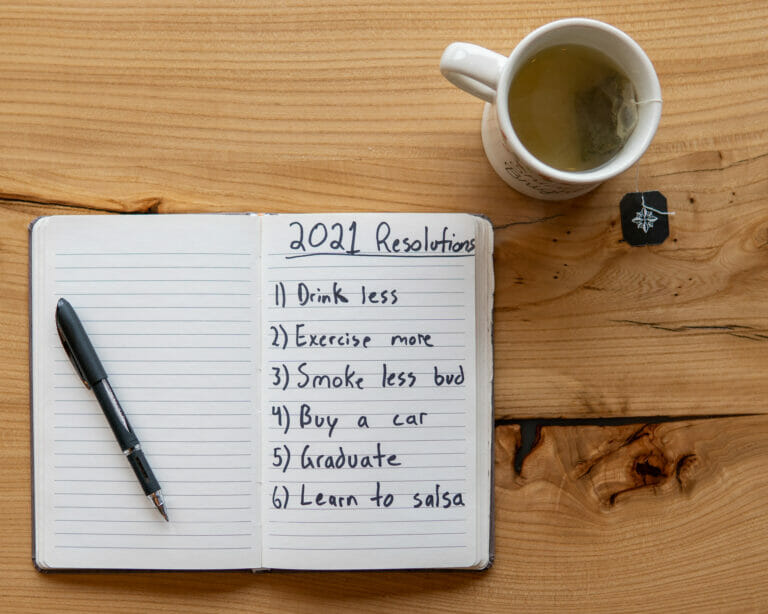 2021 Resolutions
1) Drink less
2) Exercise more
3) Smoke less bud
4) Buy a car
5) Graduate
6) Learn to salsa